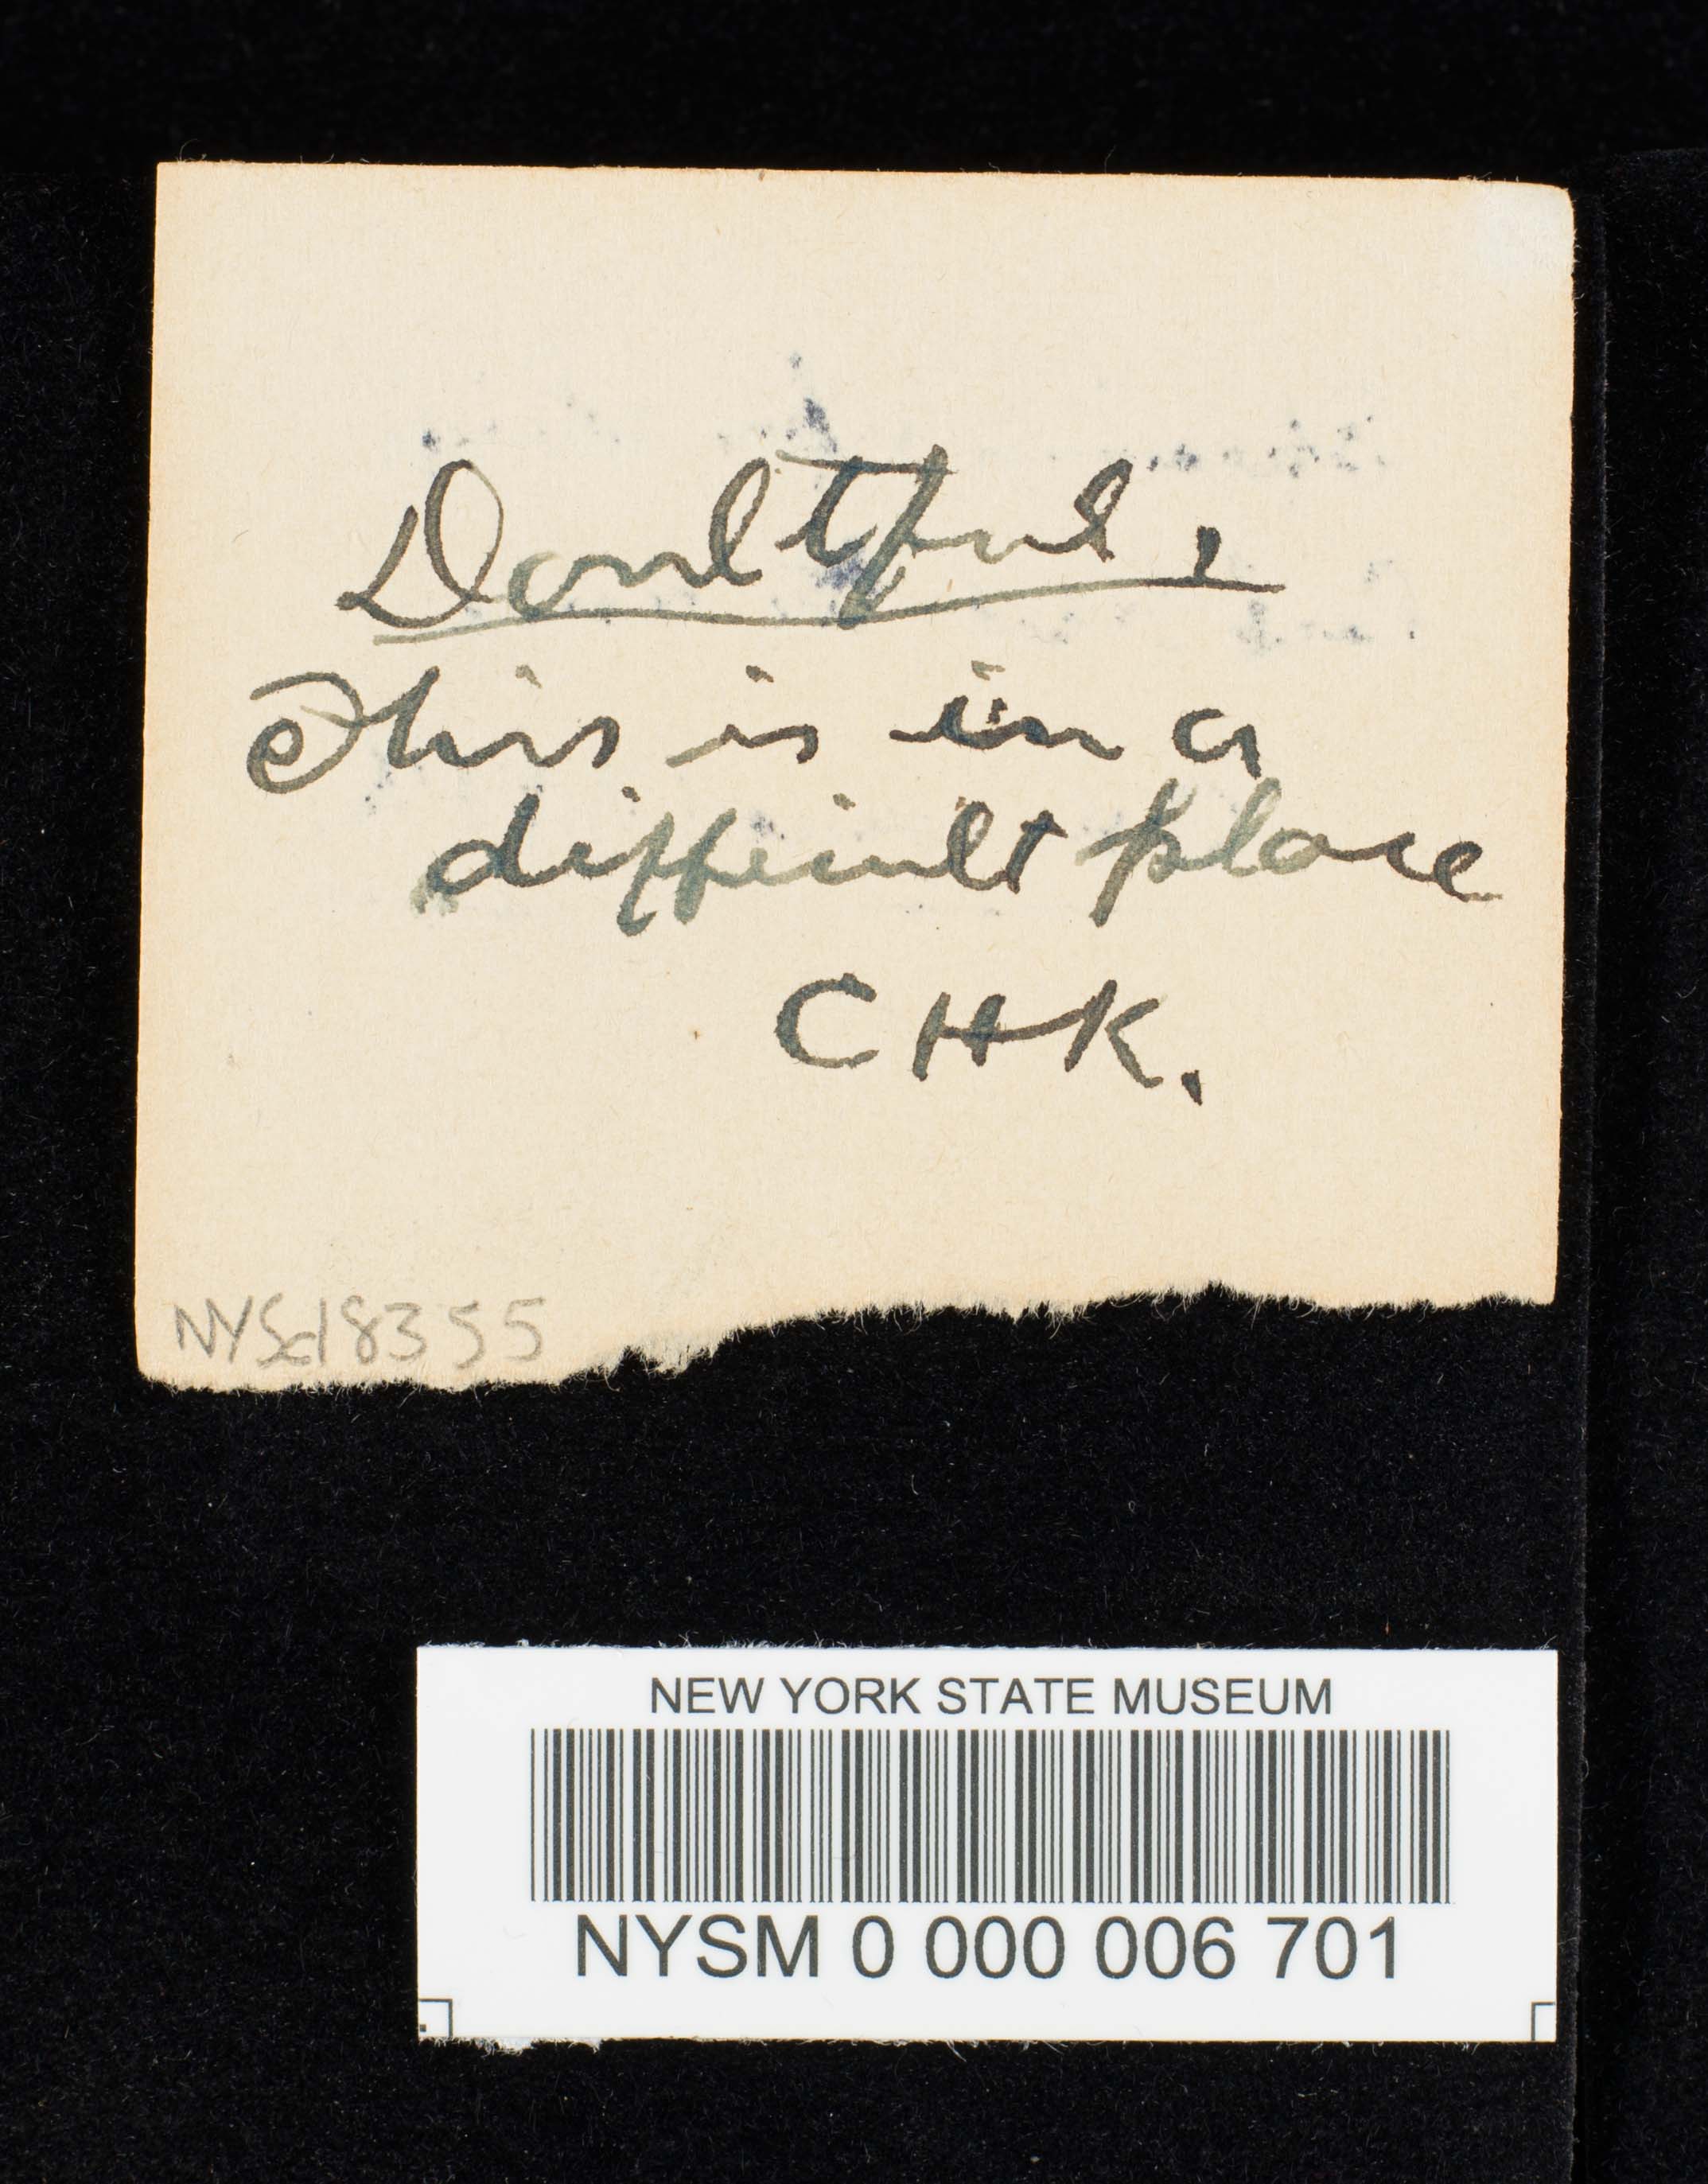 Doubtful,
This is in a
difficult place
CHK.
NYSd8355
NEW YORK STATE MUSEUM
NYSM 0 000 006 701